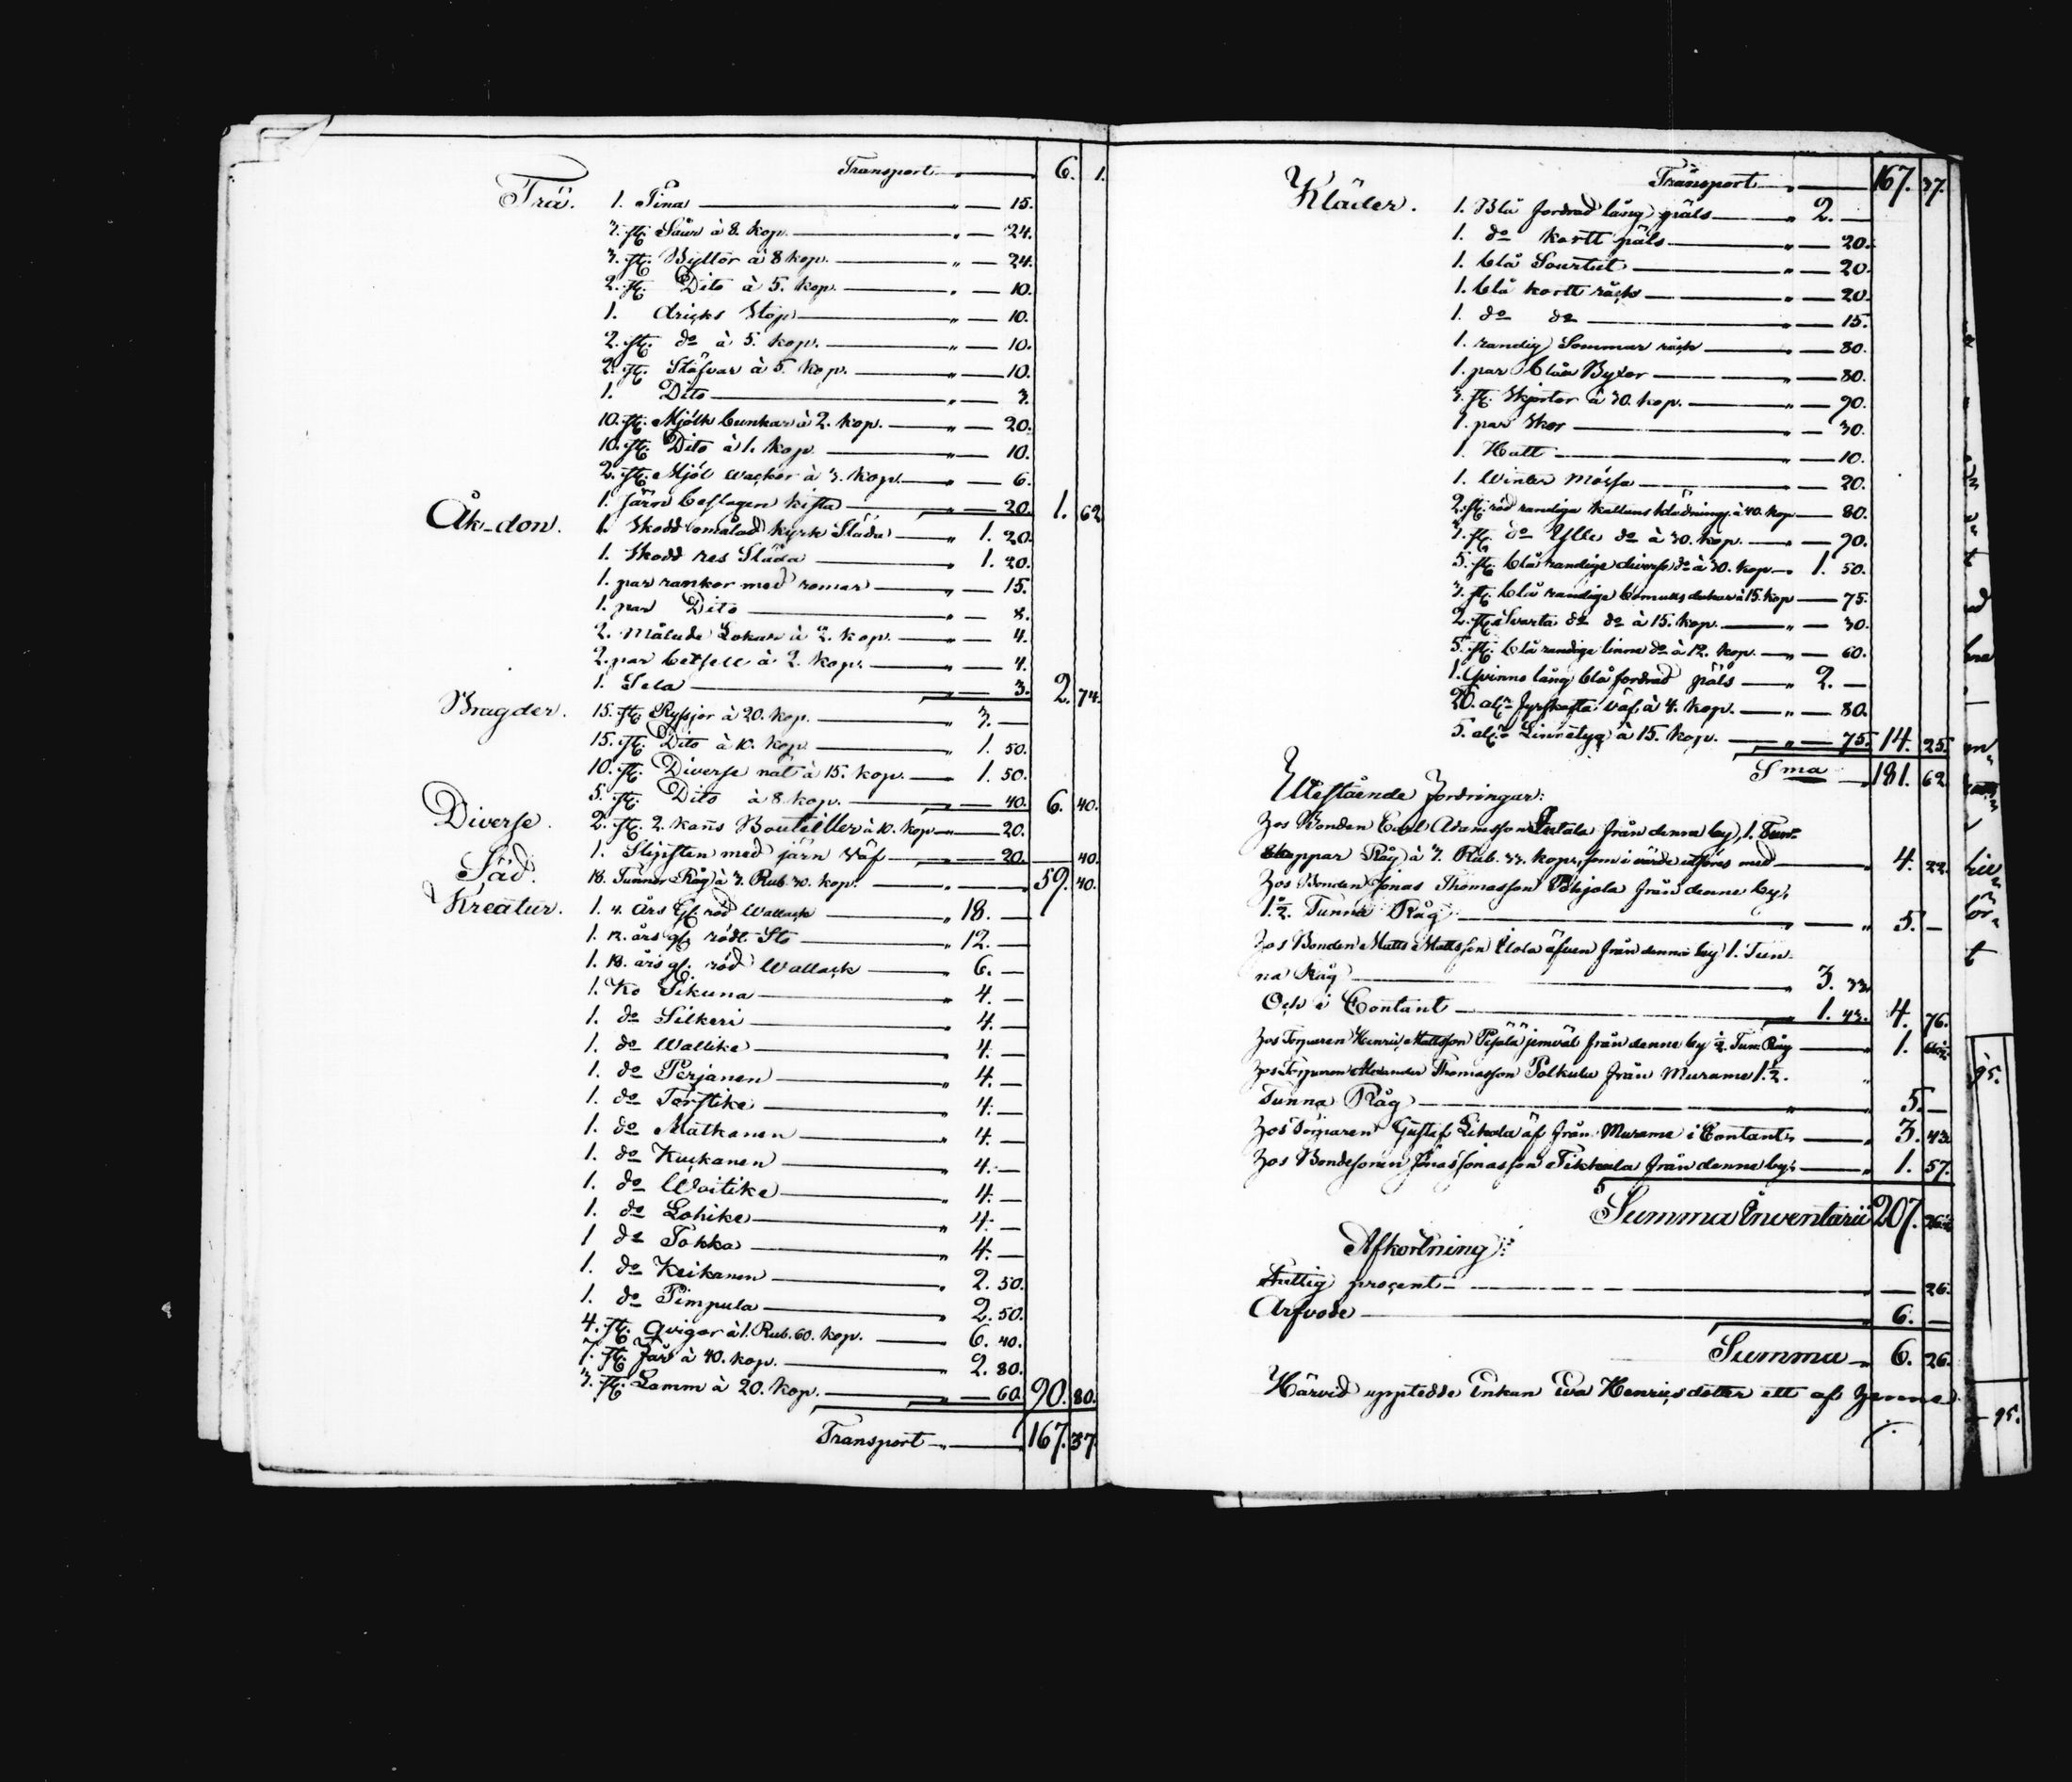 Transport 6. 1.
Trä. 1. Tina " — 15.
3. st. Såar à 8. kop. " — 24.
3. st. Byttor à 8 kop. " — 24.
2. st. Dito à 5. kop. " — 10.
1. dricks Stop " — 10.
2. st. do à 5. kop. " — 10.
2. st. Stäfvar à 5 kop. " — 10.
1. Dito " — 3.
10. st. Mjölk bunkar à 2. kop. " — 20.
10. st. Dito à 1. kop. " — 10.
2. st. Mjöl wackor à 3. kop. " — 6.
1. Järn beslagen kista " — 20. 1. 62.
Åk-don. 1. Skodd omålad kyrk Släda " 1. 20.
1. Skodd res Släda " 1. 20.
1. par rankor med remar " — 15.
1. par Dito " — 8.
2. Målade Lokar à 2. kop. " — 4.
2. par betsell à 2. kop. " — 4.
1. Sela — 3. 2. 74.
Bragder. 15. st. Ryssjor à 20. kop. " 3. —
15. st. Dito à 10. kop. " 1. 50.
10. st. Diverse nät à 15. kop. " 1. 50.
5. st. Dito à 8. kop. " — 40. 6. 40.
Diverse. 2. st. 2. kañs Bouteiller à 10. kop " — 20.
1. Slipsten med järn Väf " — 20. — 40.
Säd. 18. Tunnor Råg à 3. Rub. 30. kop. " — 59. 40.
Kreatur. 1. 4. års gl. röd Wallack " 18. —
1. 12. års gl. rödt Sto " 12. —
1. 18. års gl. röd Wallack " 6. —
1. Ko Sikuna " 4. —
1. do Silkeri " 4. —
1. do Wallike " 4. —
1. do Perjanen " 4. —
1. do Torstike " 4. —
1. do Mätkanen " 4. —
1. do Kuckanen " 4. —
1. do Woitike " 4. —
1. do Lohike " 4. —
1 do Tokka " 4. —
1. do Keikanen " 2. 50.
1. do Pimpula " 2. 50.
4. st. qvigor à 1. Rub. 60. kop. " 6. 40.
7. st. Får à 40. kop. " 2. 80.
3. st. Lamm à 20. kop. " — 60. 90. 80.
Transport " 167. 37.
Transport " 167. 37.
Kläder. 1. Blå fordrad lång päls " 2. —
1. do kortt päls " — 20.
1. blå Sourtut " — 20.
1. blå kortt råck " — 20.
1. do do " — 15.
1. randig Sommar råck " — 80.
1. par blåa Byxor " — 80.
3. st. Skjortor à 30. kop. " — 90.
1. par Skor " — 30.
1. Hatt " — 10.
1. Winter Mössa " — 20.
2. st. röd randiga klädning. à 40. kop — 80.
3. st. do Ylle do à 30. kop. " — 90.
5. st. blå randige diverse do à 30. kop. " 1. 50.
3. st. blå randige bomulls dukar à 15. kop — 75.
2. st. Svarta do do à 15. kop. " — 30.
5. st. blå randige linne do à 12. kop. " — 60.
1. Qvinno lång blå fordrad päls " 2. —
20. aln. fyrskafta Väf à 4. kop. " — 80.
5. aln. Linnetyg à 15. kop. " — 75. 14. 25.
Sma 181. 62.
Utestående fordringar:
Hos Bonden Carl Adamsson från denna by, 1. Tun-
kappar Råg à 3. Rub. 33. kop., som i värde utföres med " 4. 22.
Hos Bonden Jonas Thomasson Pohjola från denne by,
1. ½. Tunna Råg " 5. —
Hos Bonden Matts Mattsson Ylola äfven från denna by 1. Tun-
na Råg " 3. 33.
Och i Contant " 1. 43. 4. 76.
Hos Torparen Henric Mattsson jemväl från denne by ½. Tun. Råg " 1.
Hos Torparen Alexander Thomasson Polkula från Murame 1. ½.
Tunna Råg " 5. —
Hos Torparen Gustaf äf. från Murame i Contant " 3. 43.
Hos Bondesonen Jonas Jonasson från denne by, " 1. 57.
Summa Inventarii 207.
Afkortning:
Fattig procent — 26.
Arfvode 6. —
Summa " 6. 26.
Härvid upptedde Enkan Eva Henricsdotter ett af henne